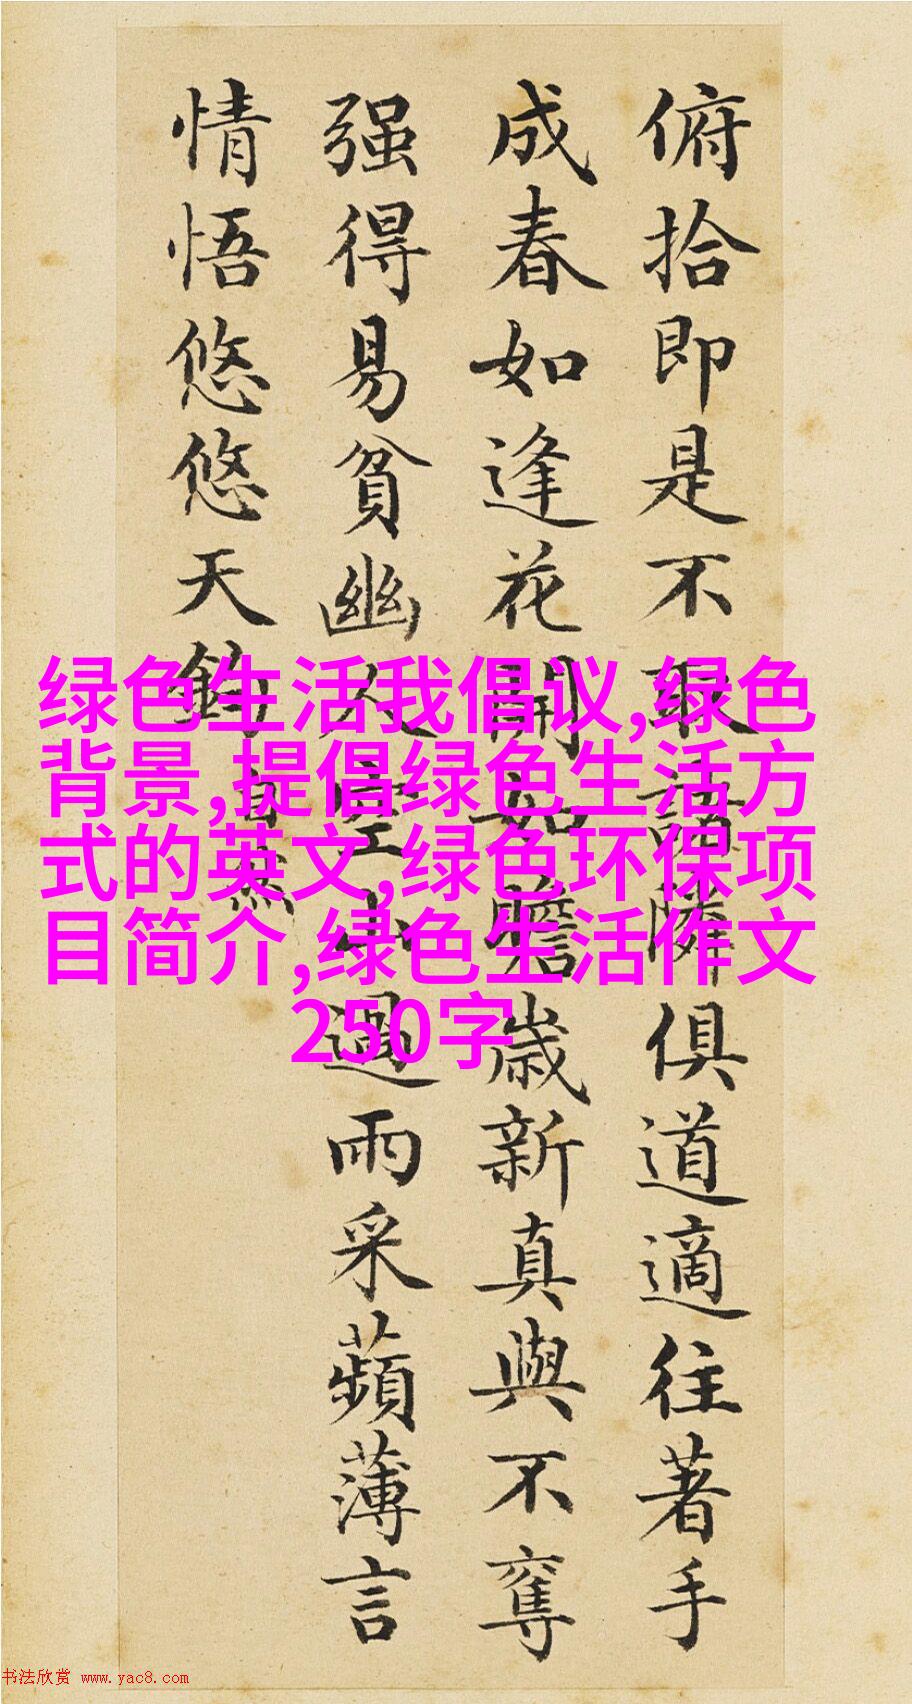 俯拾即是不取諸隣俱道適往著手
成春如逢花開如瞻歲新真與不奪
强得易貧幽人空山過雨采蘋薄言
情悟悠悠天鈞
自然
绿色生活我倡议,绿色
背景,提倡绿色生活方
式的英文,绿色环保项
目简介,绿色生活作文
250字
书法欣赏 www.yac8.com